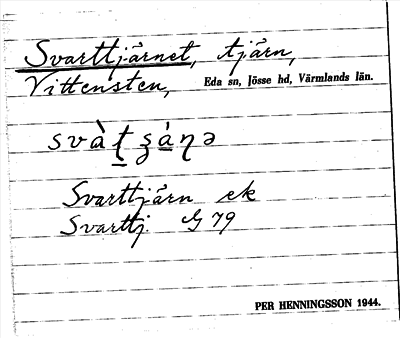 Svarttjärnet, tjärn,
Vittensten, Eda sn, Jösse hd, Värmlands län.
svàt̠ʂà̠ɳə
Svarttjärn ek
Svarttj G 79
PER HENNINGSSON 1944.